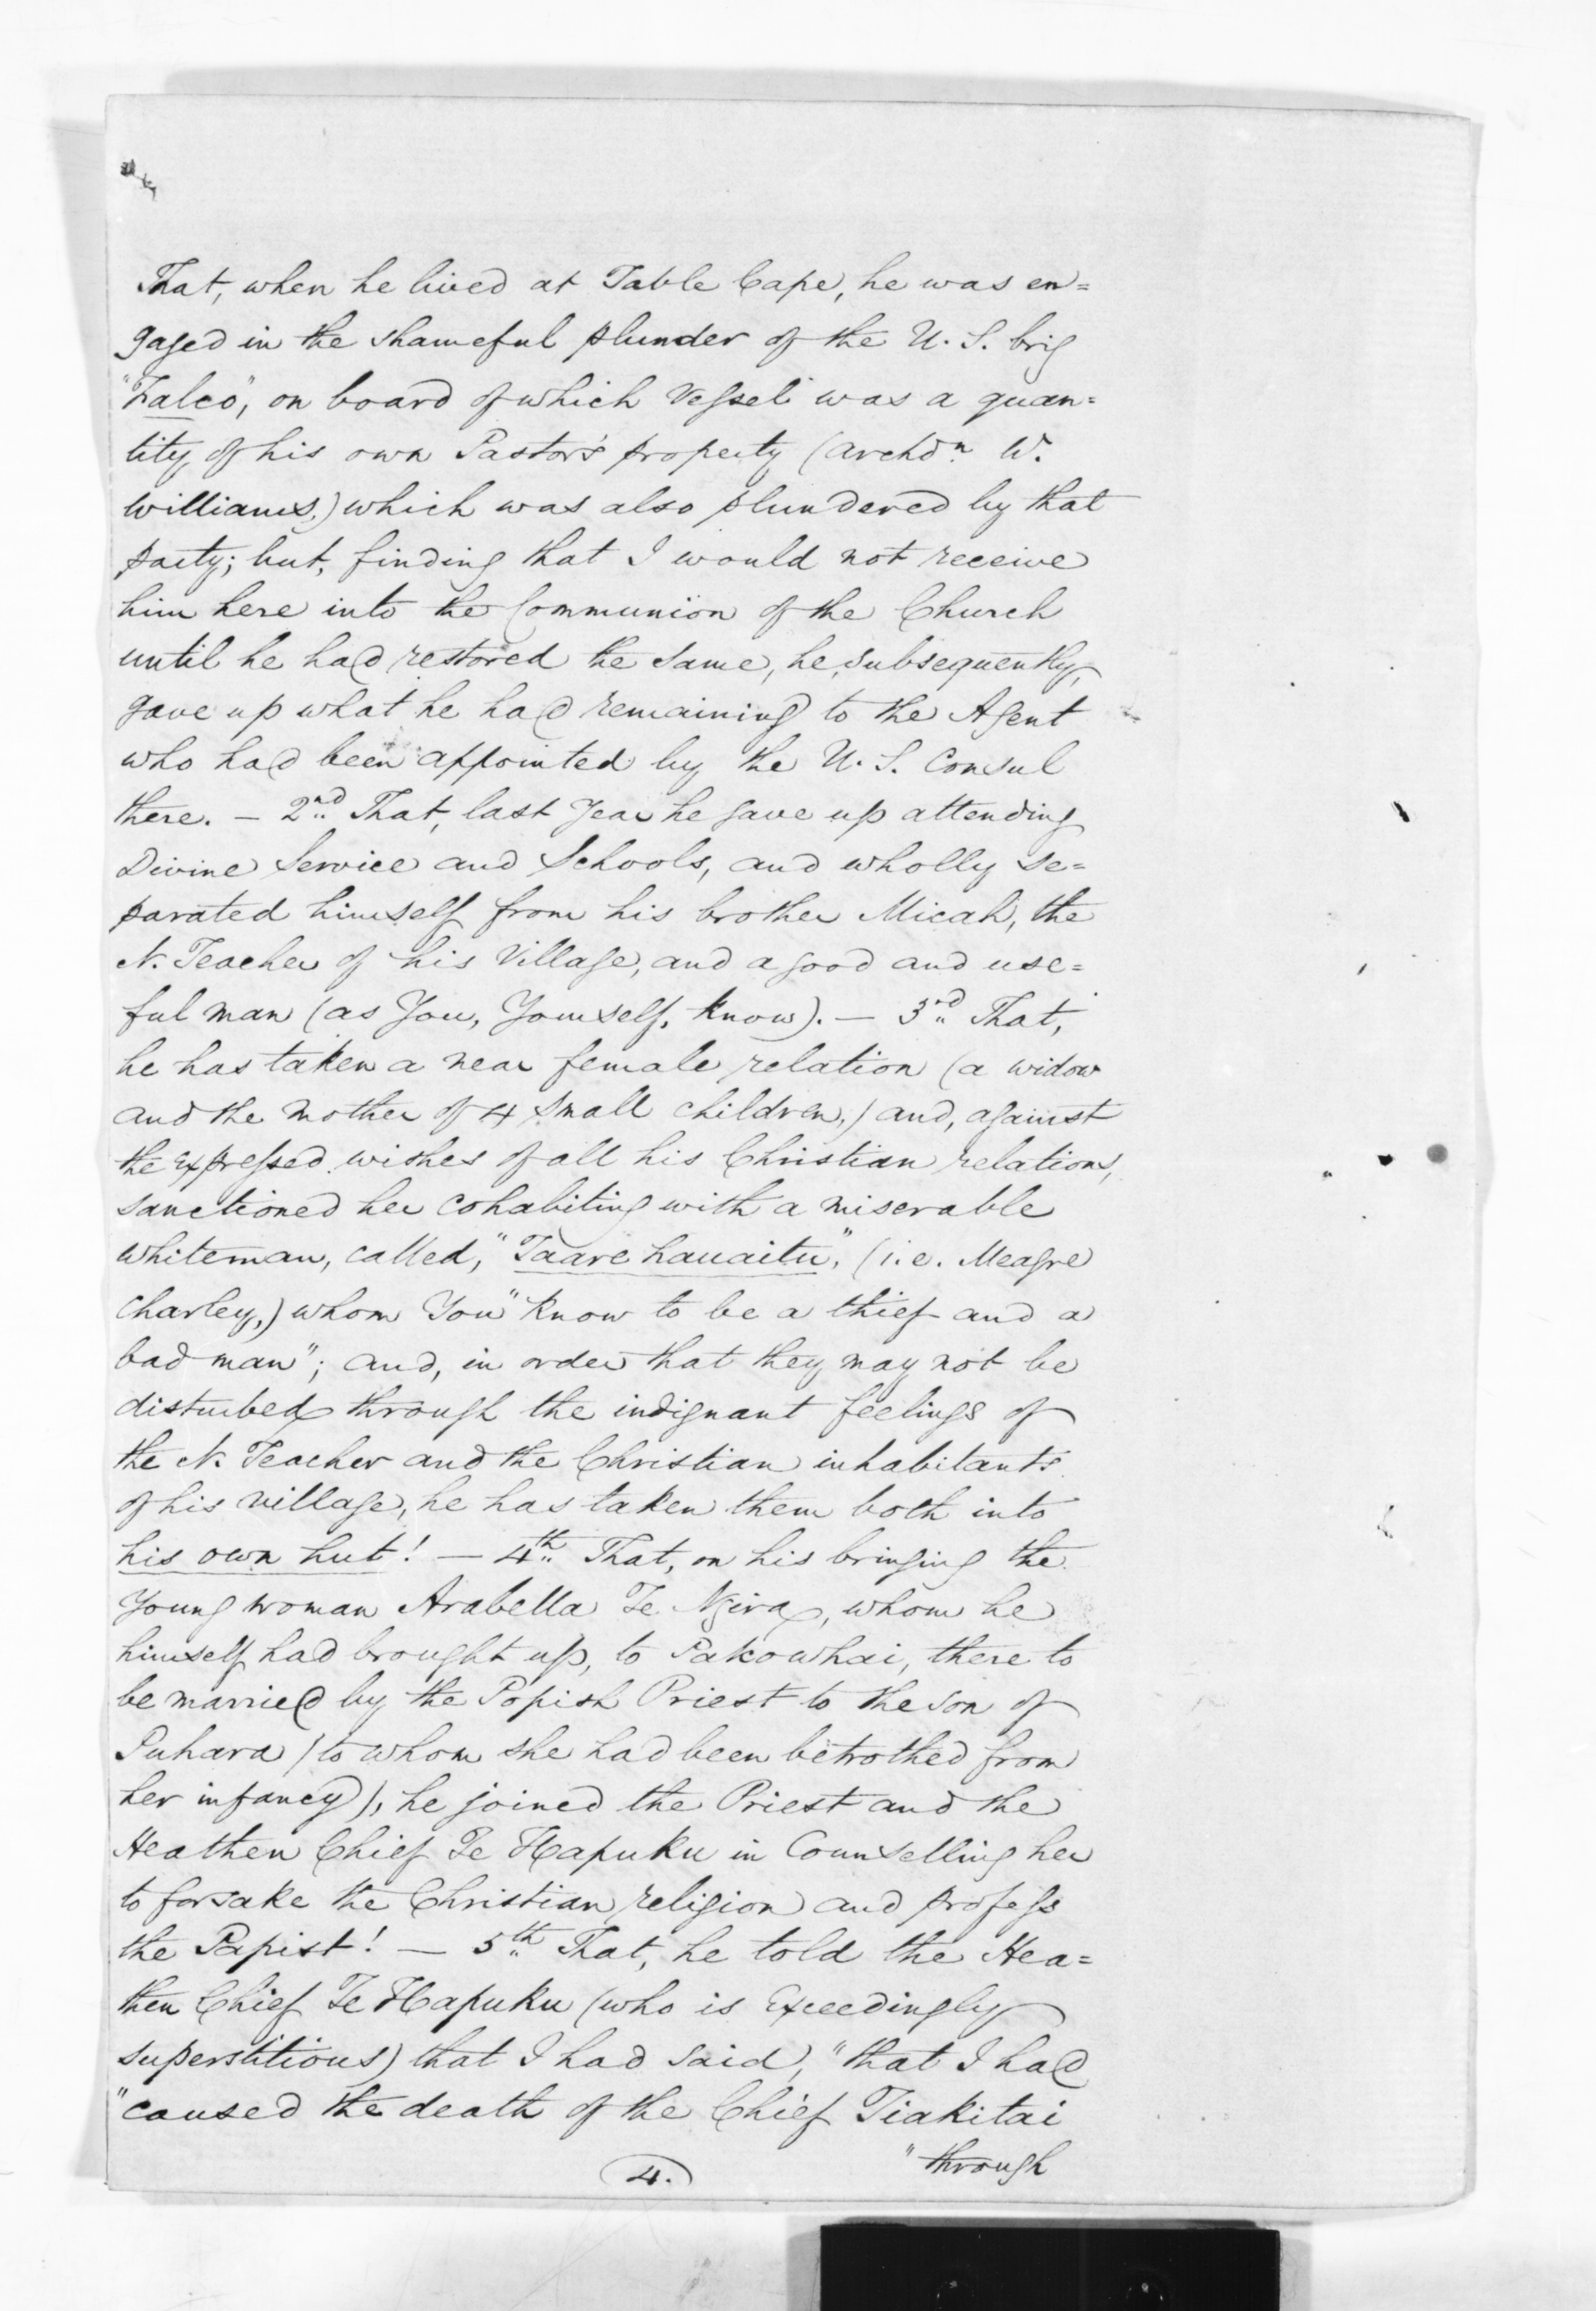 That, when he lived at Table Cape, he was en=
gaged in the shameful plunder of the U. S. brig
"Falco", on board of which Vessel was a quan=
tity of his own Pastor's property (Archdn. W.
Williams,) which was also plundered by that
party; but, finding that I would not receive
him here into the Communion of the Church
until he had restored the same, he, subsequently,
gave up what he had remaining to the Agent
who had been appointed by the U. S. Consul
there. — 2nd. That, last Year he gave up attending
Divine Service and Schools, and wholly se=
parated himself from his brother Micah, the
N. Teacher of his Village, and a good and use=
ful man (as You, Yourself, know). — 3rd. That,
he has taken a near female relation (a widow
and the mother of 4 small children,) and, against
the expressed wishes of all his Christian relations,
sanctioned her cohabiting with a miserable
whiteman, called, "Taare hauaitu", (i.e. Meagre
Charley,) whom You "know to be a thief and a
bad man"; and, in order that they may not be
disturbed through the indignant feelings of
the N. Teacher and the Christian inhabitants
of his village, he has taken them both into
his own hut! — 4th. That, on his bringing the
Young woman Arabella Te Ngira, whom he
himself had brought up, to Pakowhai, there to
be married by the Popish Priest to the son of
Puhara (to whom she had been betrothed from
her infancy), he joined the Priest and the
Heathen Chief Te Hapuku in Counselling her
to forsake the Christian religion and profess
the Papist! — 5th. That, he told the Hea=
then Chief Te Hapuku (who is exceedingly
superstitious) that I had said, "that I had
"caused the death of the Chief Tiakitai
"through
4.